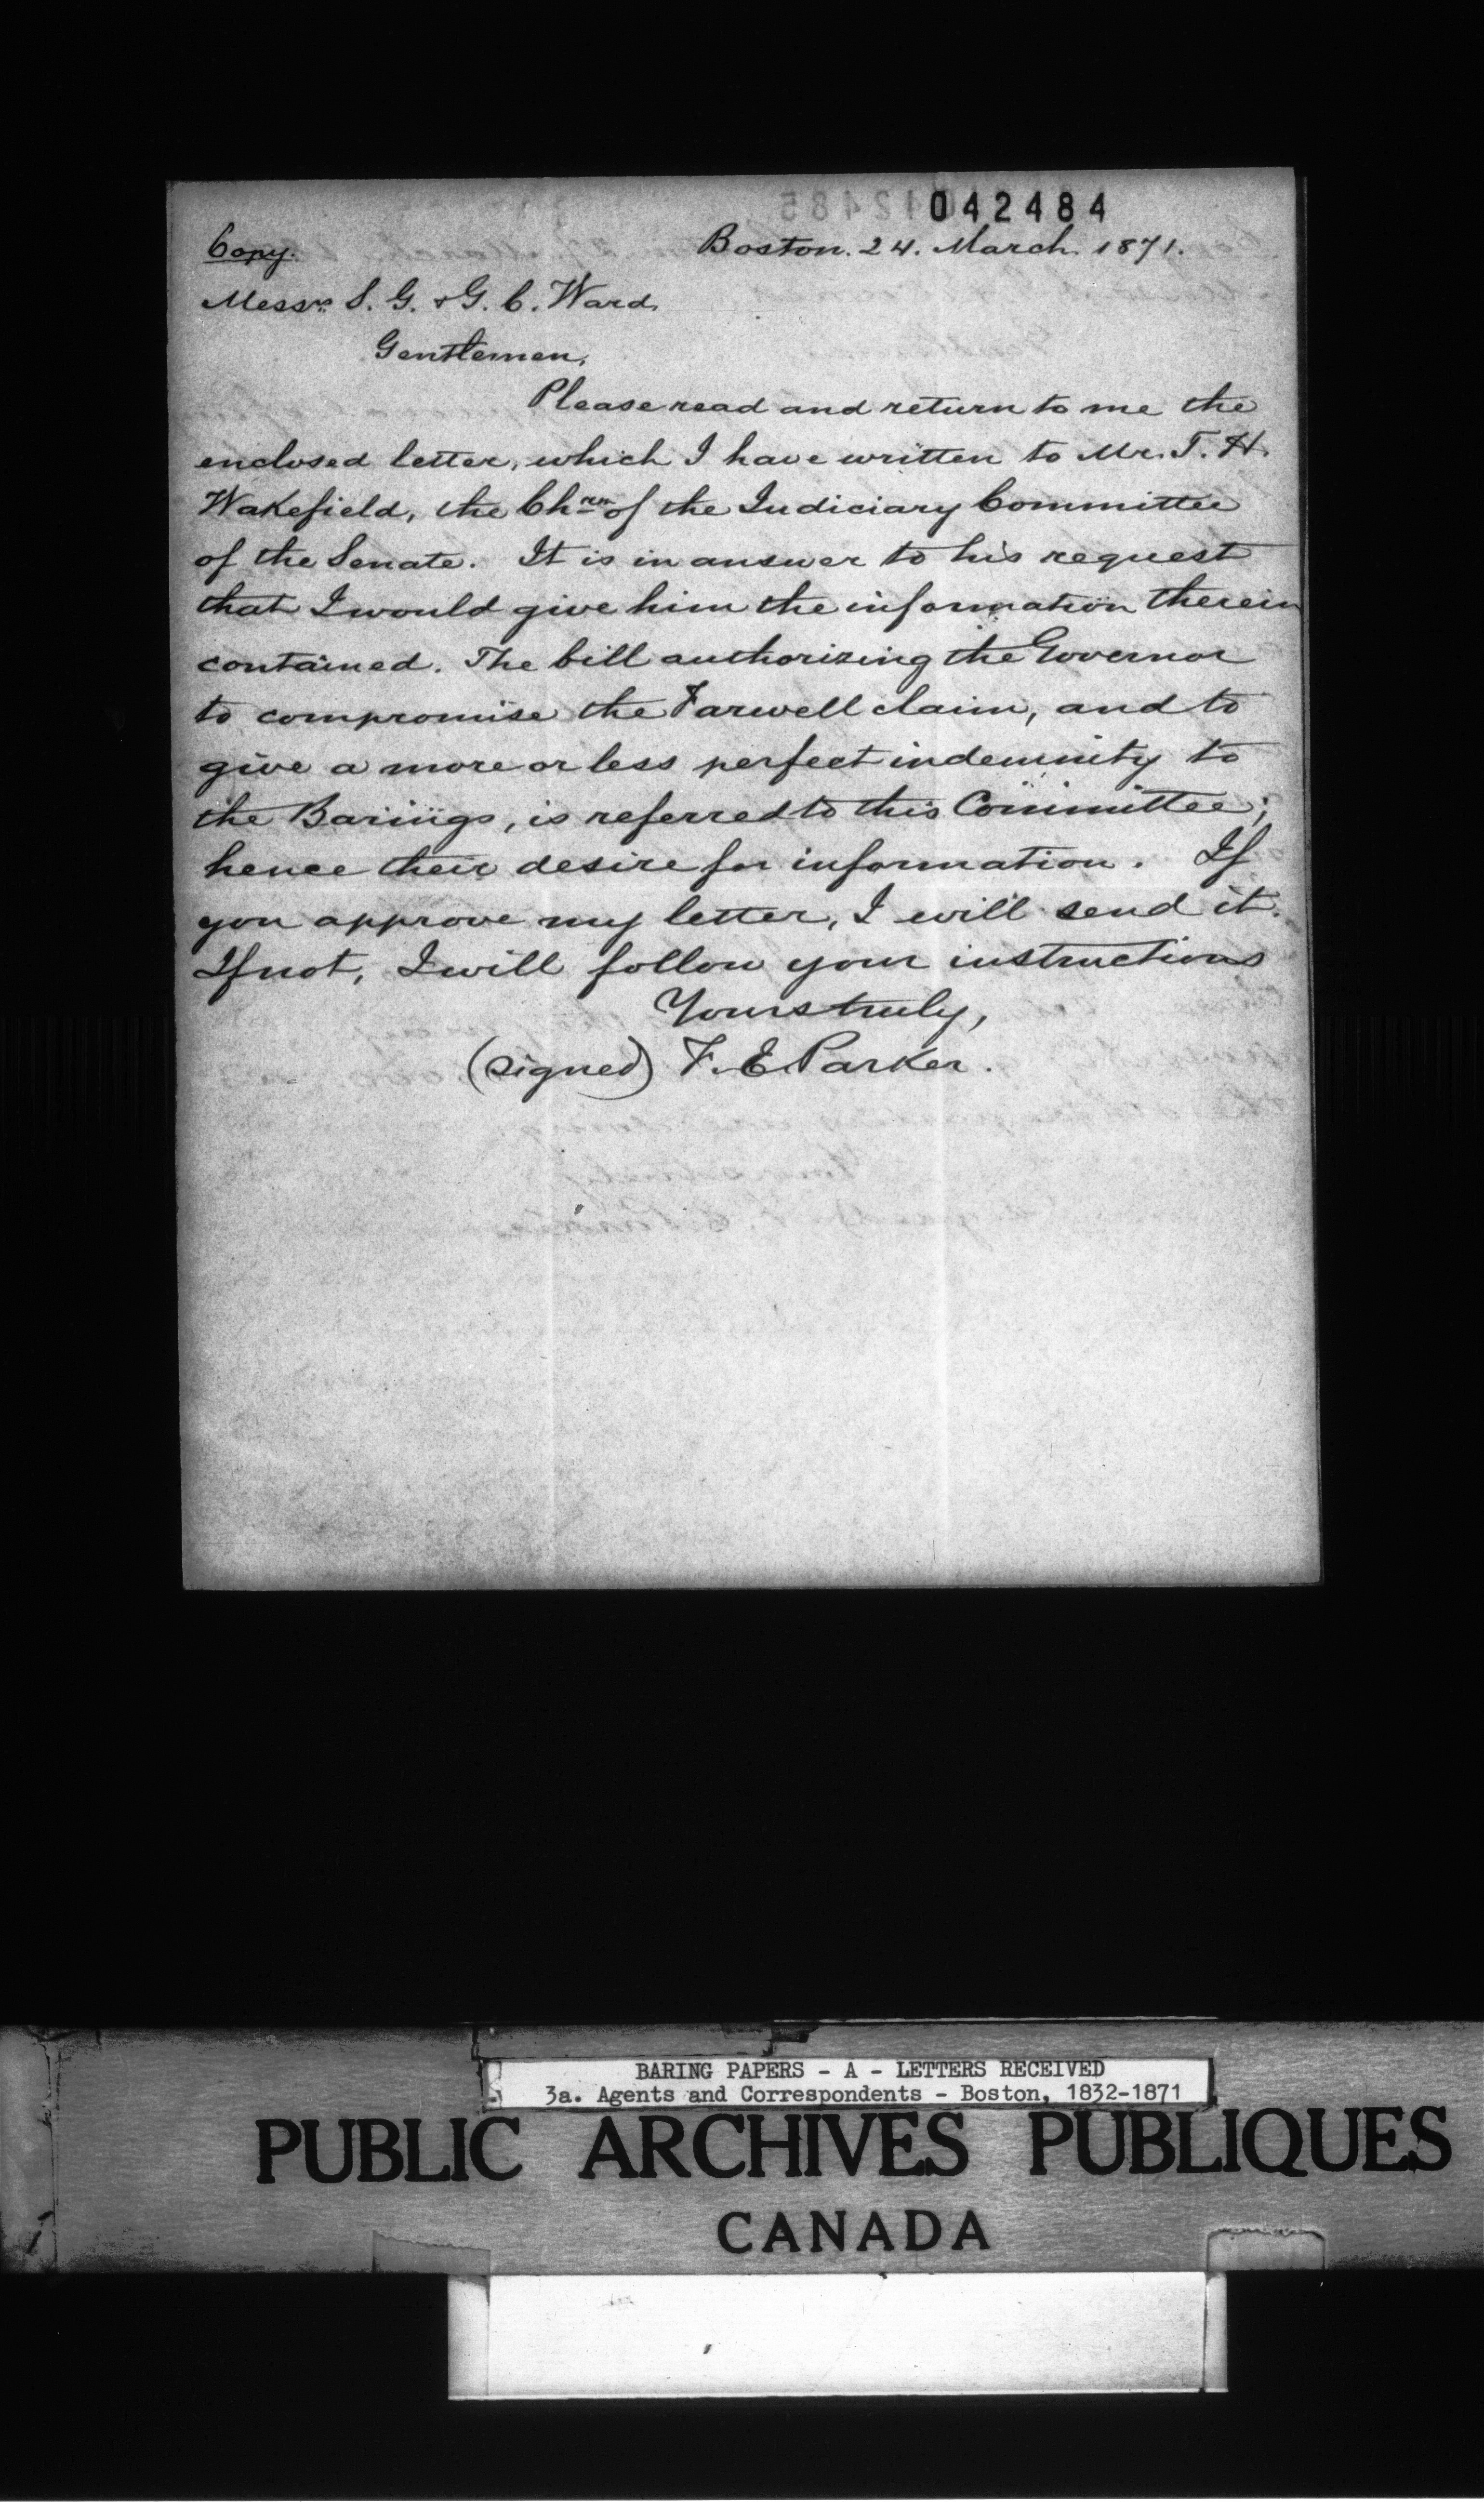 042484
Copy.
Boston. 24. March. 1871.
Messrs S. G. & G. C. Ward,
Gentlemen,
Please read and return to me the
enclosed letter, which I have written to Mr. T. H.
Wakefield, the Chrm of the Judiciary Committee
of the Senate. It is in answer to his request
that I would give him the information therein
contained. The bill authorizing the Governor
to compromise the Farwell claim, and to
give a more or less perfect indemnity to
the Barings, is referred to this Committee;
hence their desire for information. If
you approve my letter, I will send it.
If not, I will follow your instructions
Yours truly,
(signed) F. E. Parker.
BARING PAPERS - A - LETTERS RECEIVED
3a. Agents and Correspondents - Boston, 1832-1871
PUBLIC ARCHIVES PUBLIQUES
CANADA